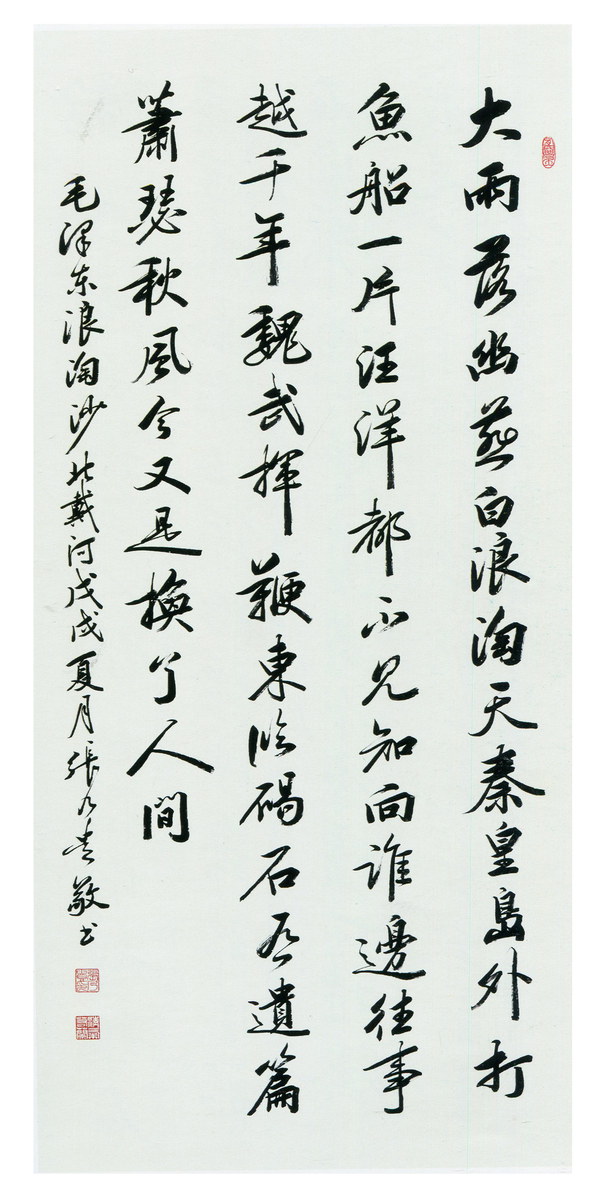 大雨落幽燕白浪淘天秦皇島外打
魚船一片汪洋都不見知向誰邊往事
越千年魏武揮鞭東臨碣石有遺篇
蕭瑟秋風今又是換了人間
毛泽东浪淘沙北戴河戊戌夏月張乃敬书